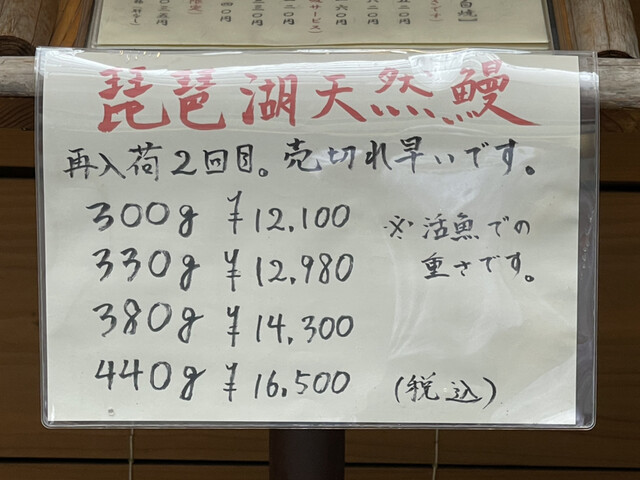 琵琶湖天然鰻
再入荷2回目。売切れ早いです。
300g ¥12,100
※活魚での
330g ¥12,980
重さです。
380g ¥14,300
440g ¥16,500
(税込)